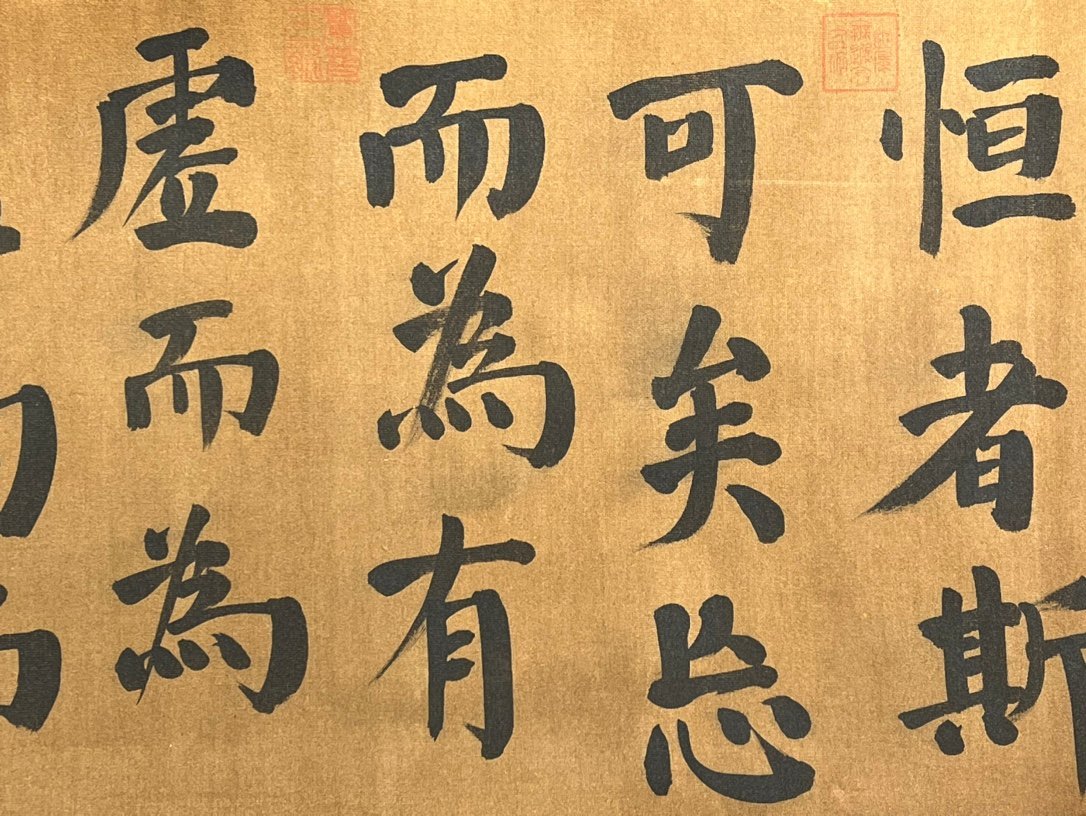 恒者斯
可矣忘
而為有
虚而為